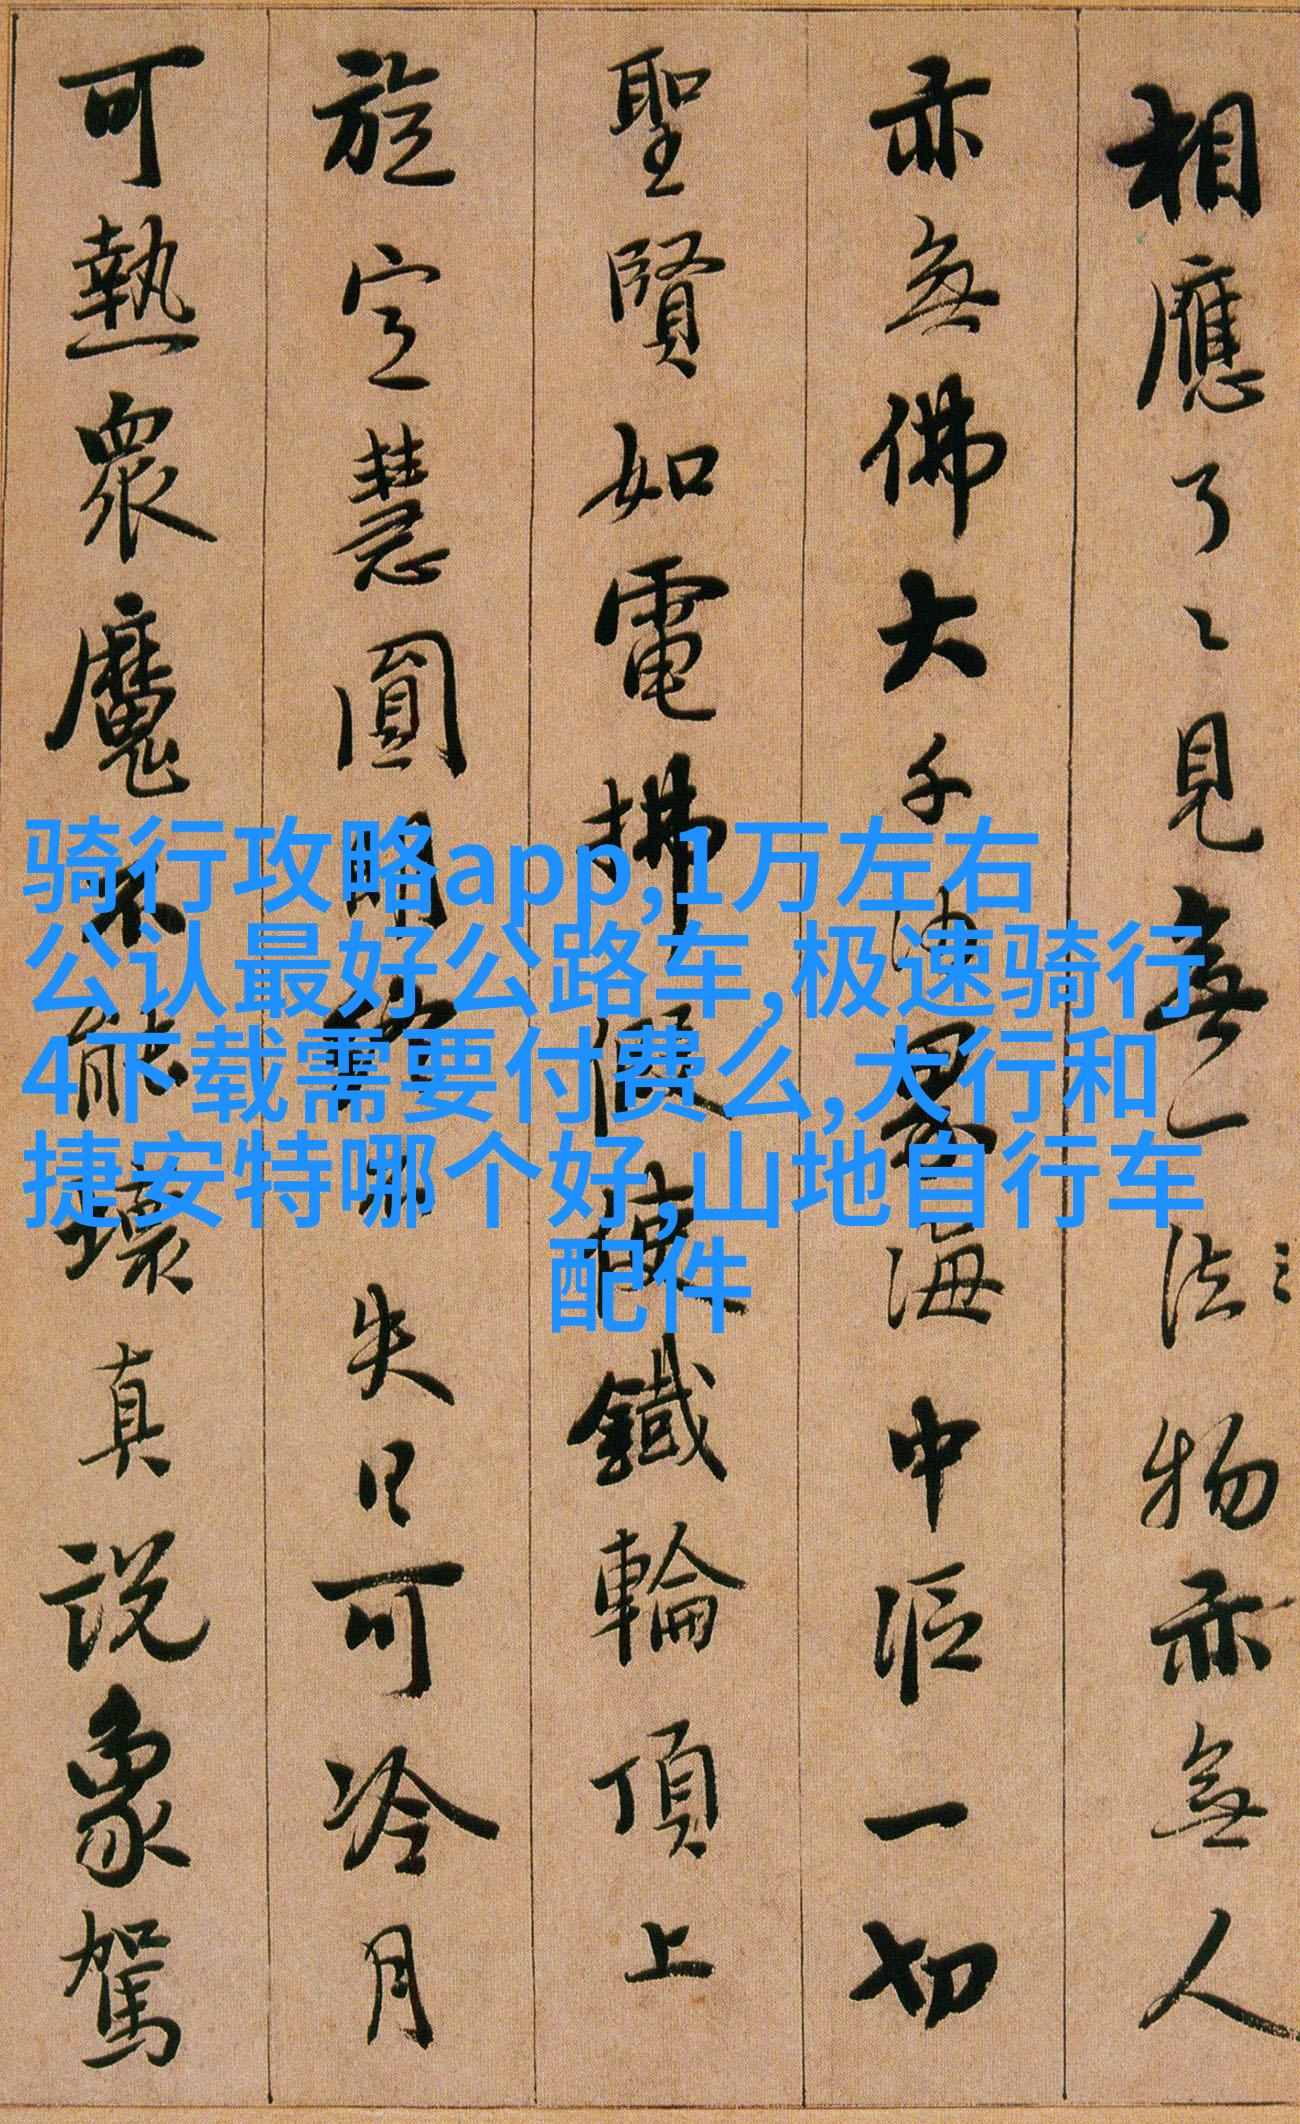 相應了〻見無一法物亦無人
亦無佛大千沙界海中漚一切
聖賢如電拂假使鐵輪頂上
旋定慧圓明終不失日可冷月
可熱衆魔不能壞真説象駕
骑行攻略app,1万左右
公认最好公路车,极速骑行
4下载需要付费么,大行和
捷安特哪个好,山地自行车
配件